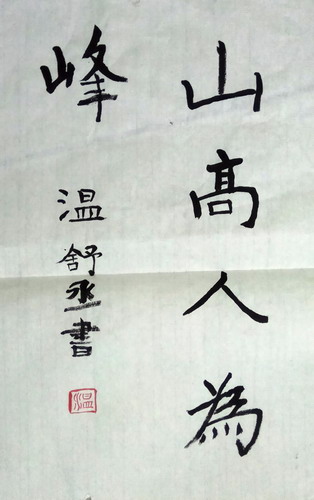 山高人為
峰
温舒丞書
温